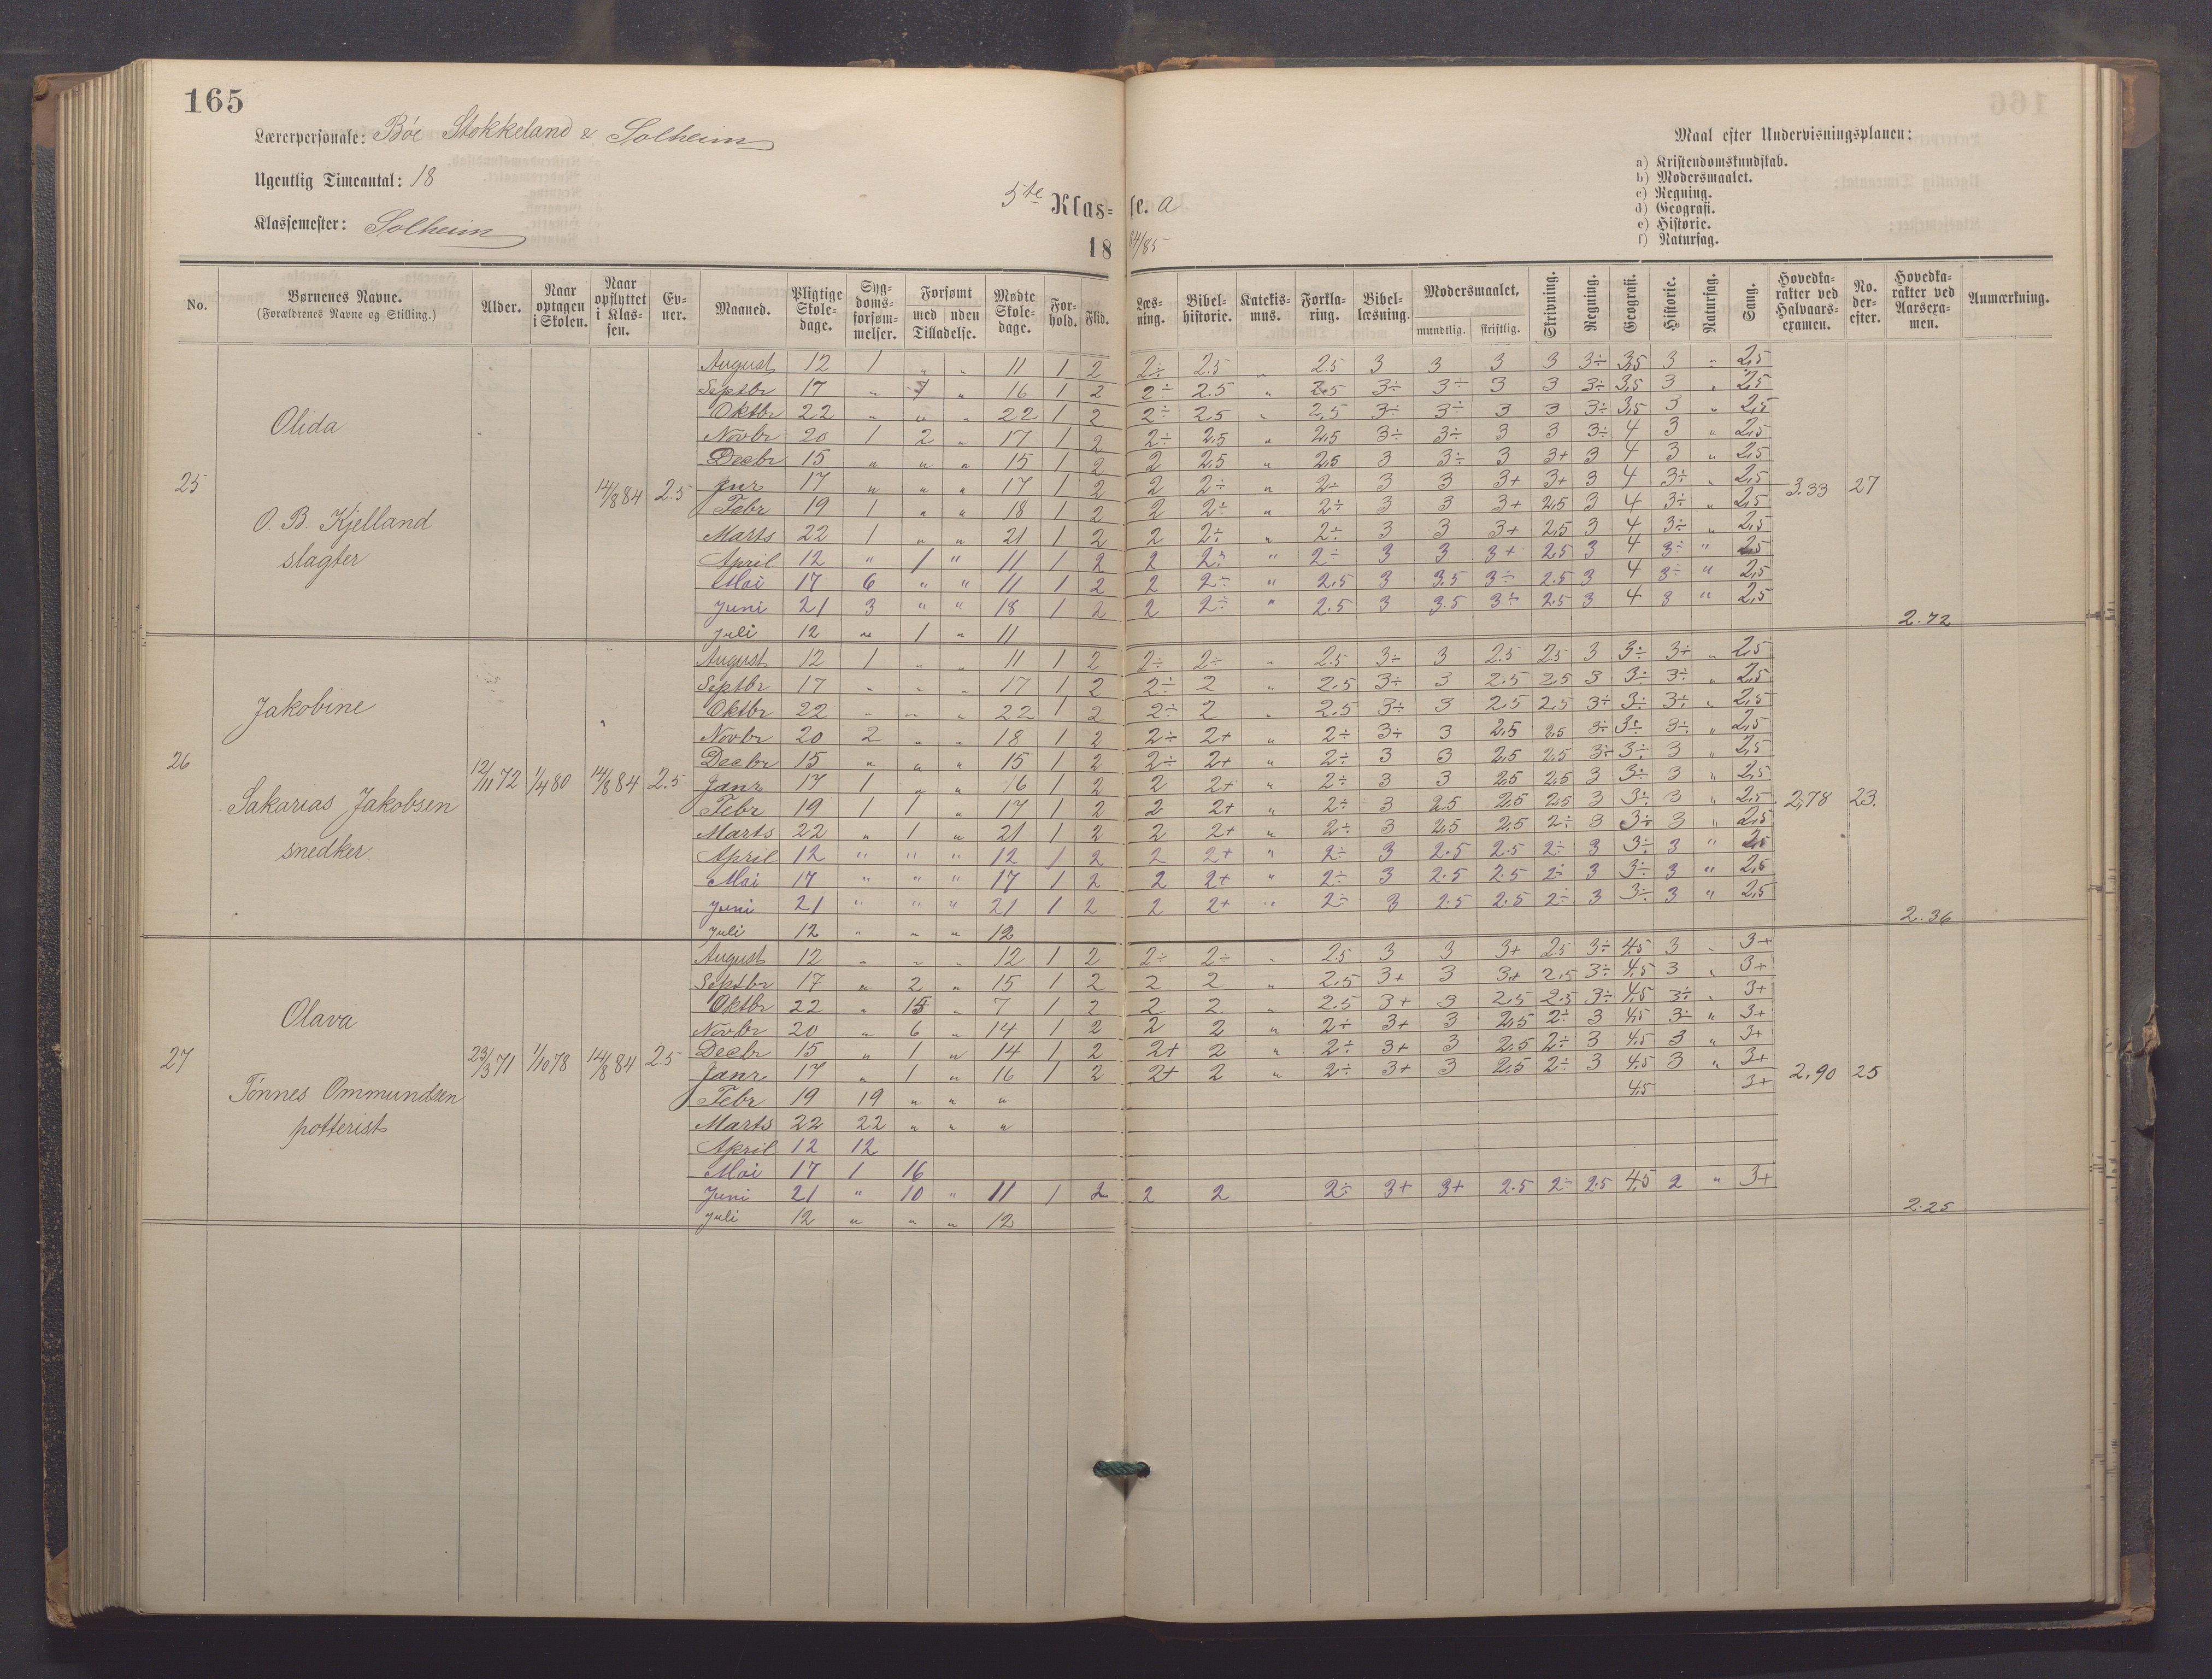 165
Lærerpersonale: Bøe Stokkeland & Solheim
Ugentlig Timeantal: 18
Klassemester: Solheim
5te Klasse. a
1884/85
Maal efter Undervisningsplanen:
a) Kristendomskundskab.
b) Modersmaalet.
c) Regning.
d) Geografi.
e) Historie.
f) Naturfag.
No. Børnenes Navne. (Forældrenes Navne og Stilling.) Alder. Naar optagen i Skolen. Naar opflyttet i Klassen. Evner. Maaned. Pligtige Skoledage. Sygdomsforsømmelser. Forsømt med uden Tilladelse. Mødte Skoledage. Forhold. Flid. Læsning. Bibelhistorie. Katekismus. Forklaring. Bibellæsning. Modersmaalet, mundtlig. skriftlig. Skrivning. Regning. Geografi. Historie. Naturfag. Sang. Hovedkarakter ved Halvaarsexamen. No. derefter. Hovedkarakter ved Aarsexamen. Anmærkning.
25 Olida O. B. Kjelland slagter 14/8 84 2.5 3.33 27 2.72
August 12 1 „ „ 11 1 2 2÷ 2.5 „ 2.5 3 3 3 3 3÷ 3,5 3 „ 2,5
Septbr 17 „ 1 „ 16 1 2 2÷ 2.5 „ 2.5 3÷ 3÷ 3 3 3÷ 3,5 3 „ 2,5
Oktbr 22 „ „ „ 22 1 2 2÷ 2,5 „ 2,5 3÷ 3÷ 3 3 3÷ 3,5 3 „ 2,5
Novbr 20 1 2 „ 17 1 2 2÷ 2,5 „ 2,5 3÷ 3÷ 3 3 3÷ 4 3 „ 2,5
Decbr 15 „ „ „ 15 1 2 2 2,5 „ 2,5 3 3÷ 3 3+ 3 4 3 „ 2,5
Jnr 17 „ „ „ 17 1 2 2 2÷ „ 2÷ 3 3 3+ 3+ 3 4 3÷ „ 2,5
Febr 19 1 „ „ 18 1 2 2 2÷ „ 2÷ 3 3 3+ 2,5 3 4 3÷ „ 2,5
Marts 22 1 „ „ 21 1 2 2 2÷ „ 2÷ 3 3 3+ 2,5 3 4 3÷ „ 2,5
April 12 „ 1 „ 11 1 2 2 2÷ „ 2÷ 3 3 3+ 2.5 3 4 3÷ „ 2,5
Mai 17 6 „ „ 11 1 2 2 2÷ „ 2.5 3 3.5 3÷ 2.5 3 4 3÷ „ 2,5
Juni 21 3 „ „ 18 1 2 2 2÷ „ 2.5 3 3.5 3÷ 2.5 3 4 3 „ 2,5
Juli 12 „ 1 „ 11
26 Jakobine Sakarias Jakobsen snedker. 12/11 72 1/4 80 14/8 84 2.5 2,78 23. 2.36
August 12 1 „ „ 11 1 2 2÷ 2÷ „ 2.5 3÷ 3 2.5 2,5 3 3÷ 3÷ „ 2,5
Septbr 17 „ „ „ 17 1 2 2÷ 2 „ 2.5 3÷ 3 2.5 2,5 3 3÷ 3÷ „ 2,5
Oktbr 22 „ „ „ 22 1 2 2÷ 2 „ 2.5 3÷ 3 2.5 2,5 3÷ 3÷ 3÷ „ 2,5
Novbr 20 2 „ „ 18 1 2 2÷ 2+ „ 2÷ 3÷ 3 2,5 2,5 3÷ 3÷ 3÷ „ 2,5
Decbr 15 „ „ „ 15 1 2 2÷ 2+ „ 2÷ 3 3 2,5 2,5 3÷ 3÷ 3 „ 2,5
Janr 17 1 „ „ 16 1 2 2 2+ „ 2÷ 3 3 2,5 2,5 3 3÷ 3 „ 2,5
Febr 19 1 1 „ 17 1 2 2 2+ „ 2÷ 3 2,5 2,5 2,5 3 3÷ 3 „ 2,5
Marts 22 „ 1 „ 21 1 2 2 2+ „ 2÷ 3 2,5 2,5 2÷ 3 3÷ 3 „ 2,5
April 12 „ „ „ 12 1 2 2 2+ „ 2÷ 3 2.5 2.5 2÷ 3 3÷ 3 „ 2,5
Mai 17 „ „ „ 17 1 2 2 2+ „ 2÷ 3 2.5 2.5 2÷ 3 3÷ 3 „ 2,5
Juni 21 „ „ „ 21 1 2 2 2+ „ 2÷ 3 2.5 2.5 2÷ 3 3÷ 3 „ 2,5
Juli 12 „ „ „ 12
27 Olava Tønnes Ommundsen potterist 23/3 71 1/10 78 14/8 84 2.5 2,90 25 2.25
August 12 „ „ „ 12 1 2 2÷ 2÷ „ 2.5 3 3 3+ 2.5 3÷ 4,5 3 „ 3+
Septbr 17 „ 2 „ 15 1 2 2 2 „ 2.5 3+ 3 3+ 2,5 3÷ 4,5 3 „ 3+
Oktbr 22 „ 15 „ 7 1 2 2 2 „ 2.5 3+ 3 2,5 2.5 3÷ 4,5 3÷ „ 3+
Novbr 20 „ 6 „ 14 1 2 2 2 „ 2÷ 3+ 3 2,5 2÷ 3 4,5 3÷ „ 3+
Decbr 15 „ 1 „ 14 1 2 2+ 2 „ 2÷ 3+ 3 2,5 2÷ 3 4,5 3 „ 3+
Janr 17 „ 1 „ 16 1 2 2+ 2 „ 2÷ 3+ 3 2,5 2÷ 3 4,5 3 „ 3+
Febr 19 19 „ „ „ 4,5 3+
Marts 22 22 „ „ „
April 12 12
Mai 17 1 16
Juni 21 „ 10 „ 11 1 2 2 2 2÷ 3+ 3+ 2.5 2÷ 2.5 4,5 2 „ 3+
Juli 12 „ „ „ 12